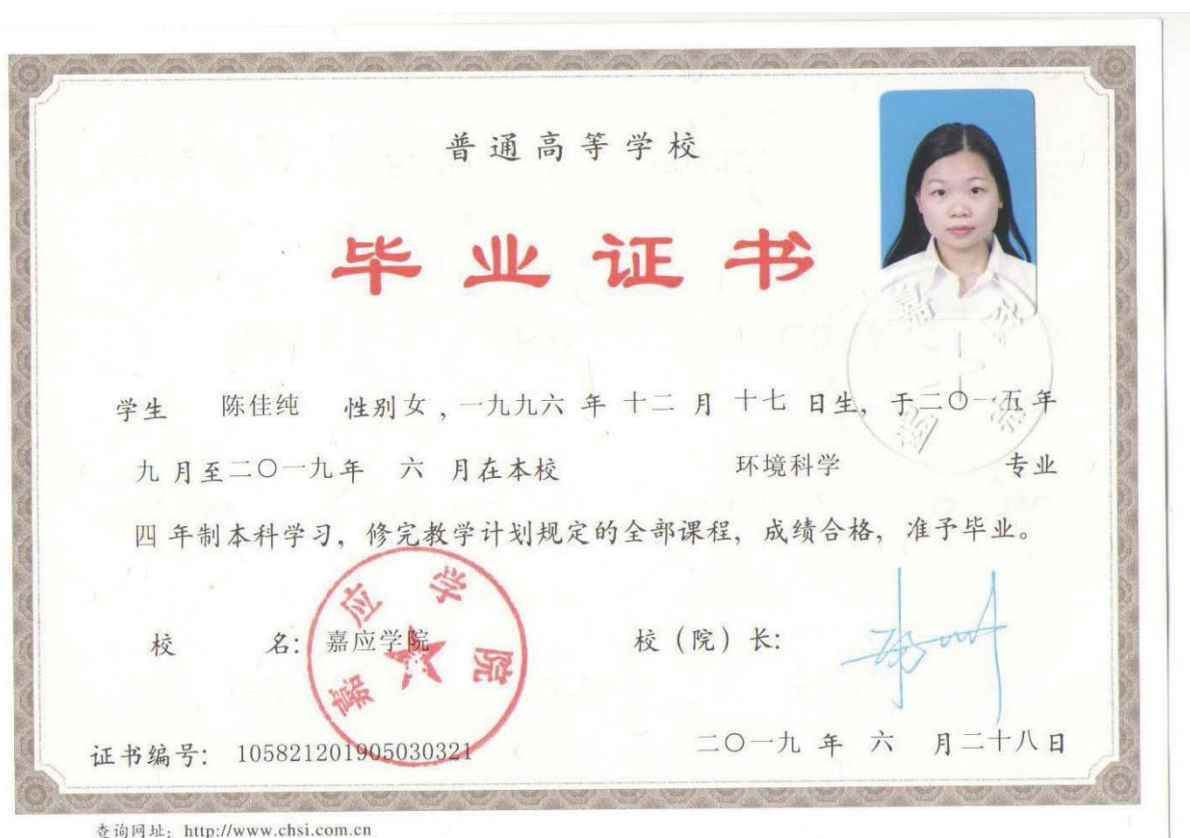 普通高等学校
毕业证书
学生 陈佳纯 性别女，一九九六年十二月十七日生，于二〇一五年
九月至二〇一九年 六 月在本校 环境科学 专业
四年制本科学习，修完教学计划规定的全部课程，成绩合格，准予毕业。
校 名：嘉应学院 校（院）长：
嘉应学院
证书编号：105821201905030321 二〇一九年 六 月二十八日
查询网址：http://www.chsi.com.cn